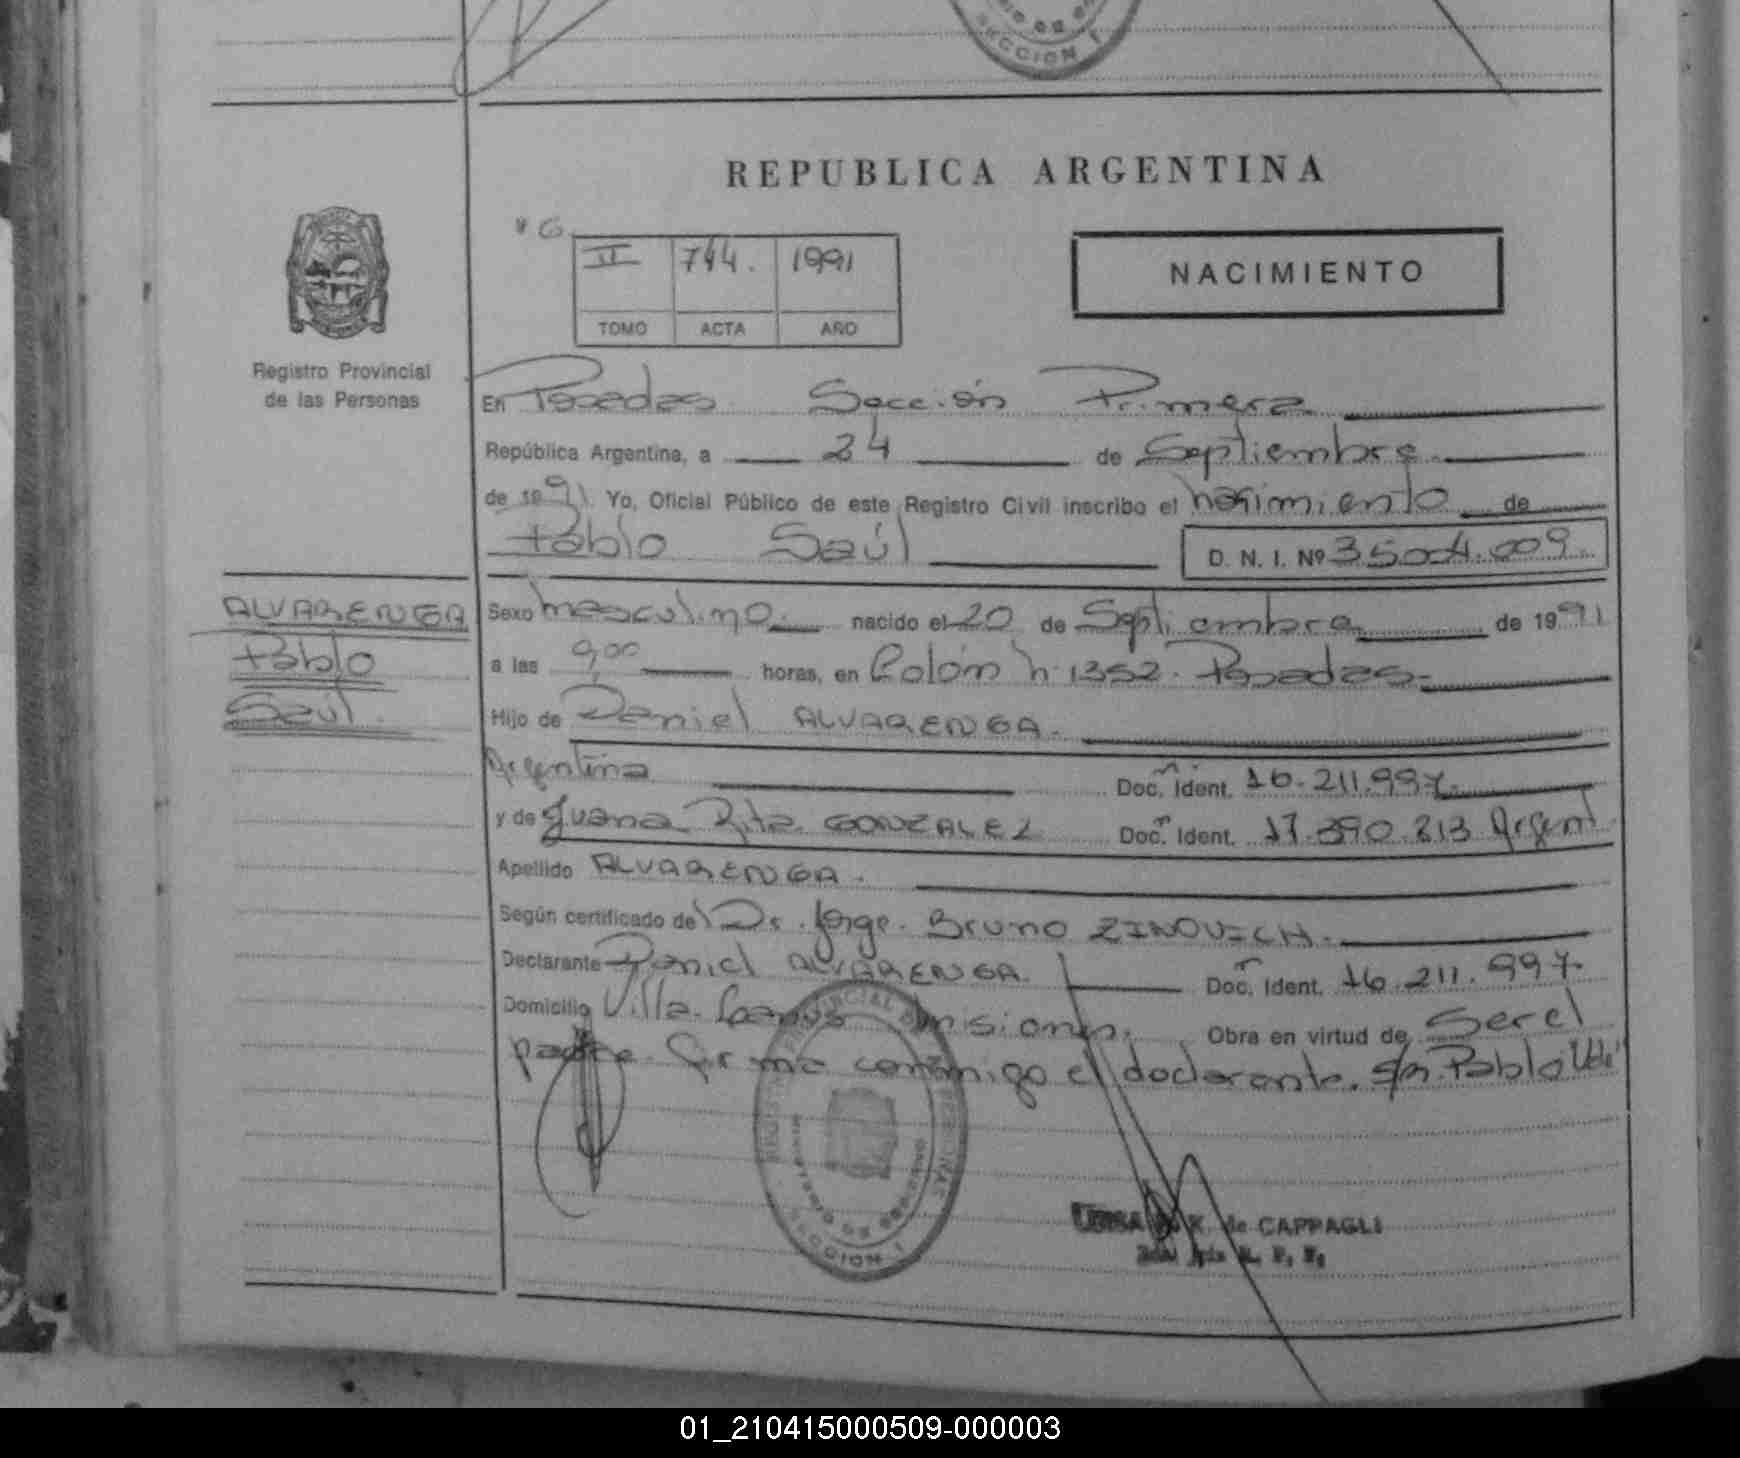 SECCION I
REPUBLICA ARGENTINA
II 744. 1991
TOMO ACTA AÑO
NACIMIENTO
Registro Provincial
de las Personas
En Posadas Sección Primera
República Argentina, a 24 de Septiembre
de 1991 Yo, Oficial Público de este Registro Civil inscribo el nacimiento de
Pablo Saúl D. N. I. Nº 35.004.009
ALVARENGA
Pablo
Saúl.
Sexo masculino. nacido el 20 de Septiembre de 1991
a las 9,00 horas, en Colón nº 1352. Posadas.
Hijo de Daniel ALVARENGA.
Argentina Doc. Ident. 16.211.997.
y de Juana Rita GONZALEZ Doc. Ident. 17.390.213 Argent
Apellido ALVARENGA.
Según certificado de Dr. Jorge Bruno ZINOVICH.
Declarante Daniel ALVARENGA. Doc. Ident. 16.211.997.
Domicilio Villa Misiones. Obra en virtud de Ser el
padre. Firma conmigo el declarante. Pablo Vale
REGISTRO PROVINCIAL DE PERSONAS
SECCION I
de CAPPAGLI
01_210415000509-000003